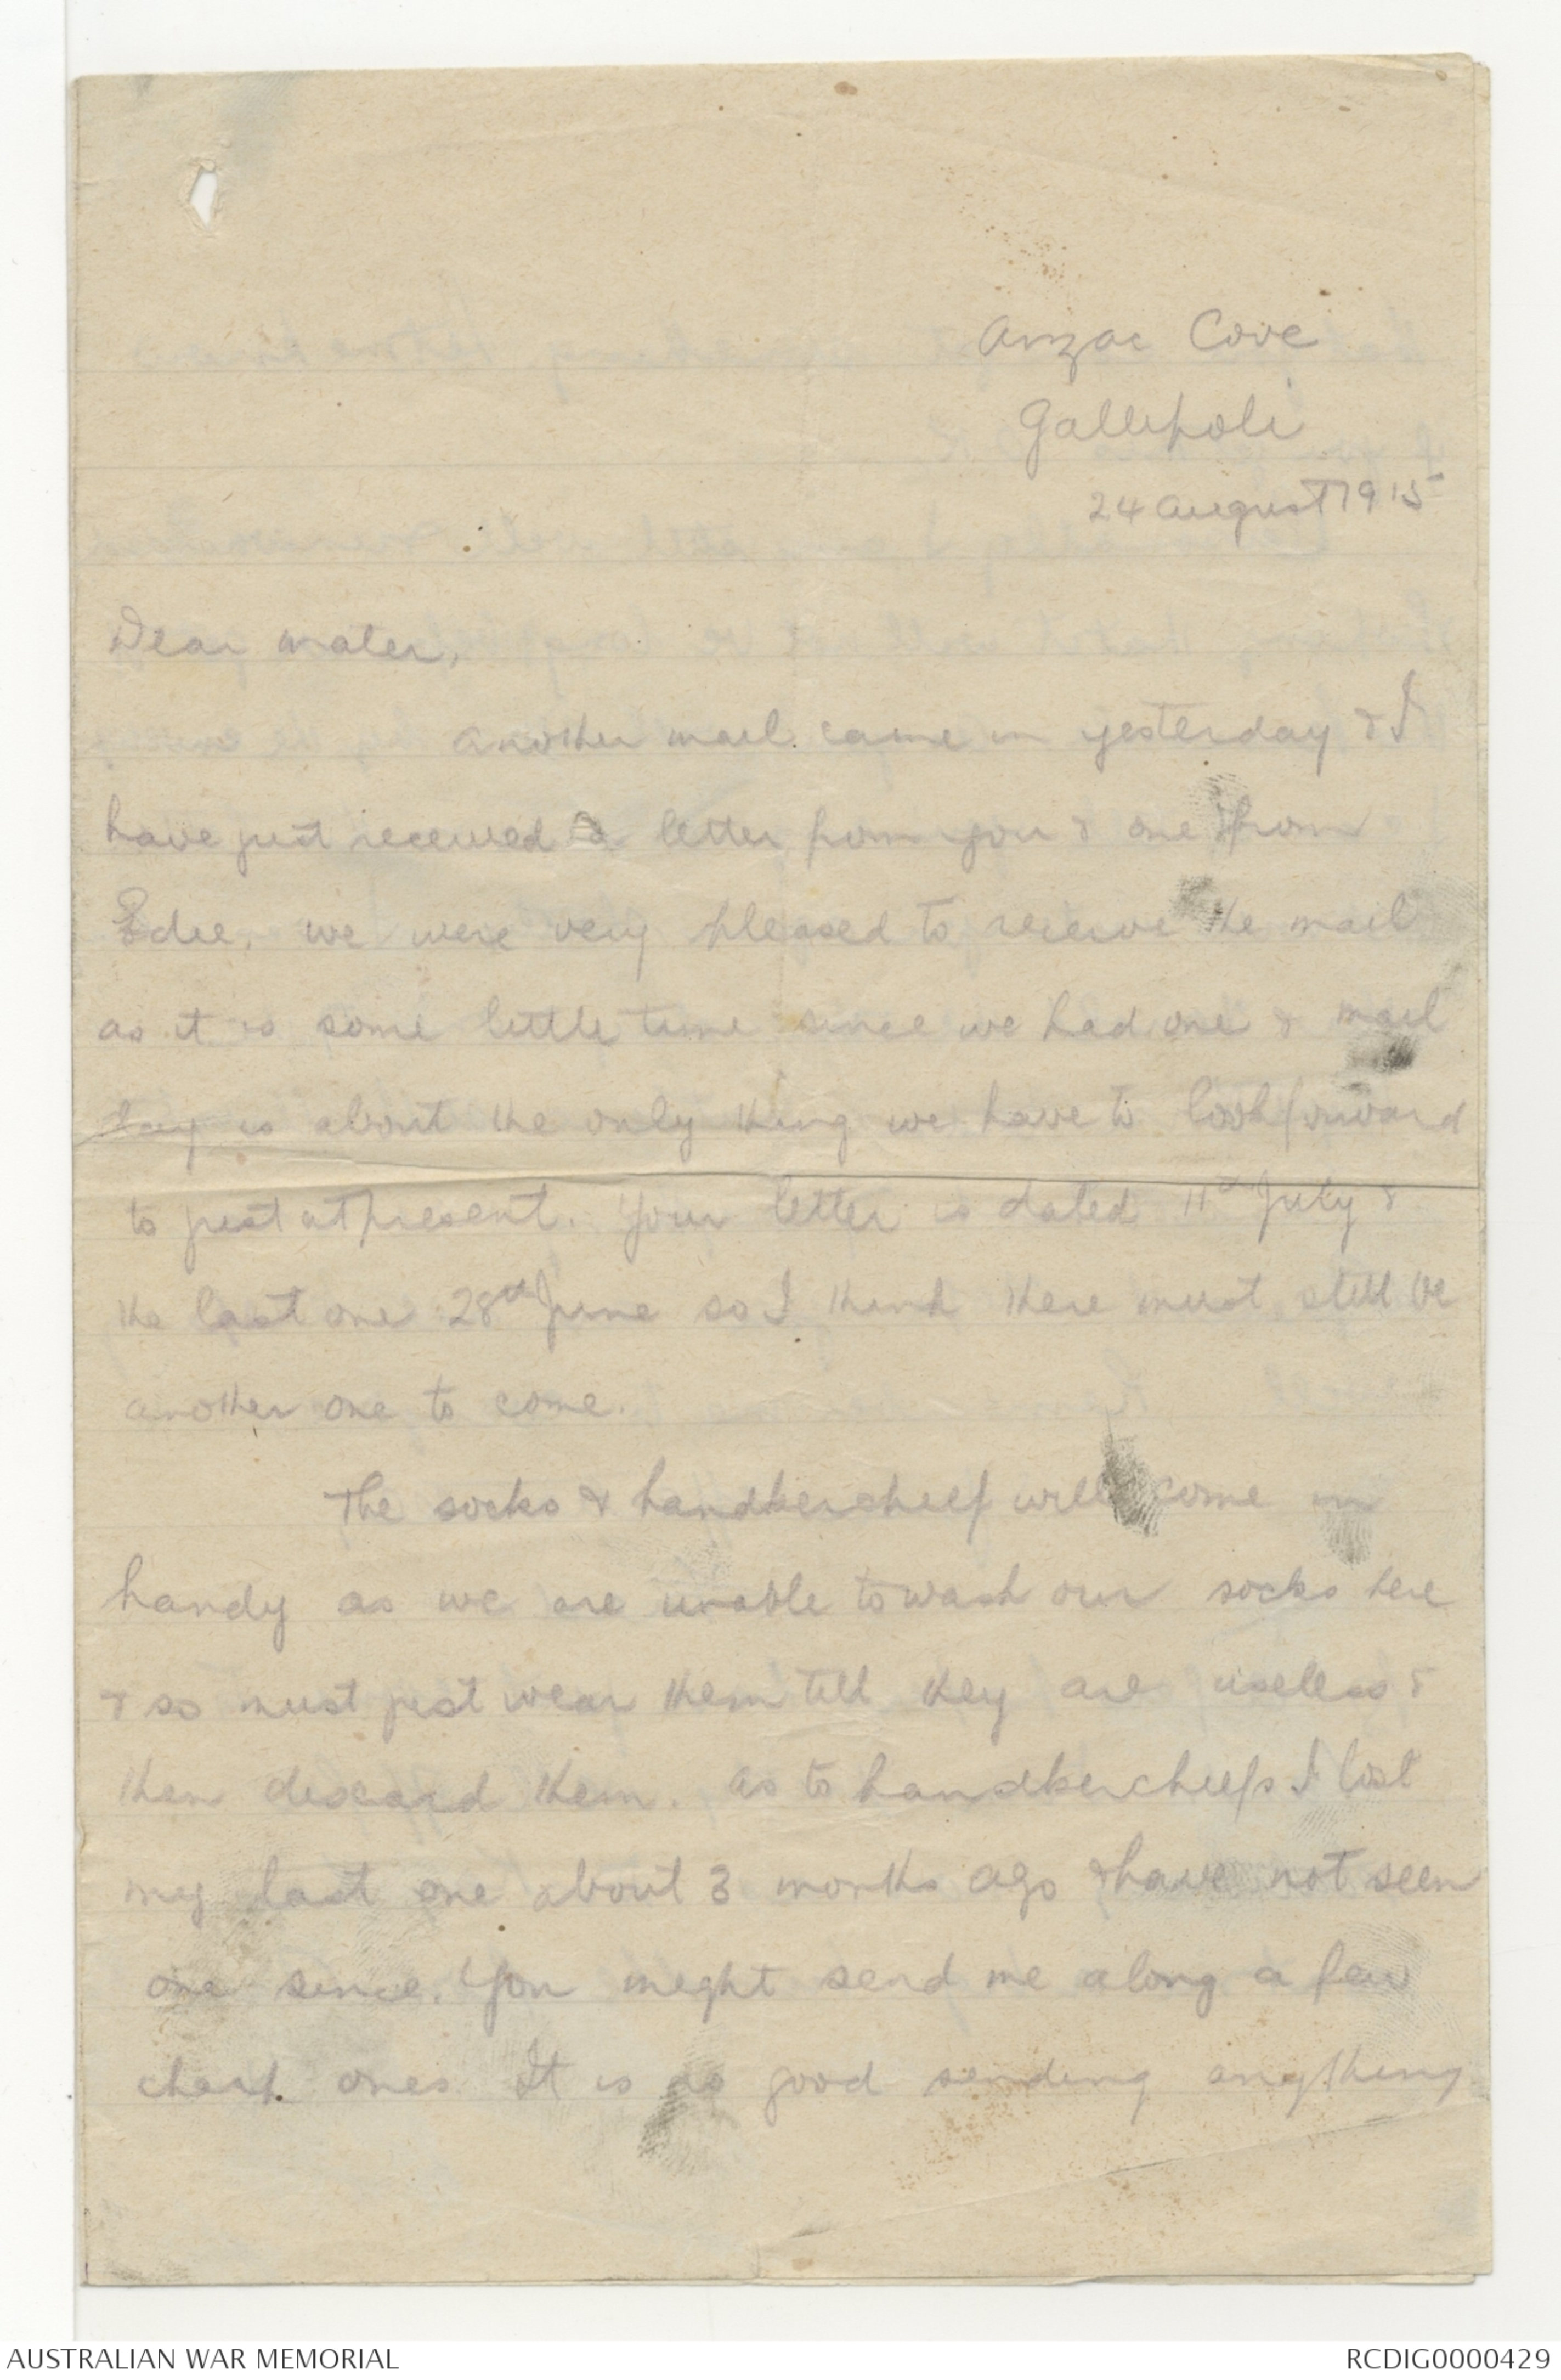 Anzac Cove
Gallipoli
24 August 1915
Dear Mater,
Another mail came in yesterday & I
have just received a letter from you & one from
Edie, we were very pleased to receive the mail
as it is some little time since we had one & mail
day is about the only thing we have to look forward
to just at present. Your letter is dated 11th July &
the last one 28th June so I think there must still be
another one to come.
The socks & handkercheef will come in
handy as we are unable to wash our socks here
& so must just wear them till they are useless &
then discard them. As to handkercheefs I lost
my last one about 3 months ago & have not seen
one since. You might send me along a few
cheap ones It is no good sending anything
AUSTRALIAN WAR MEMORIAL
RCDIG0000429